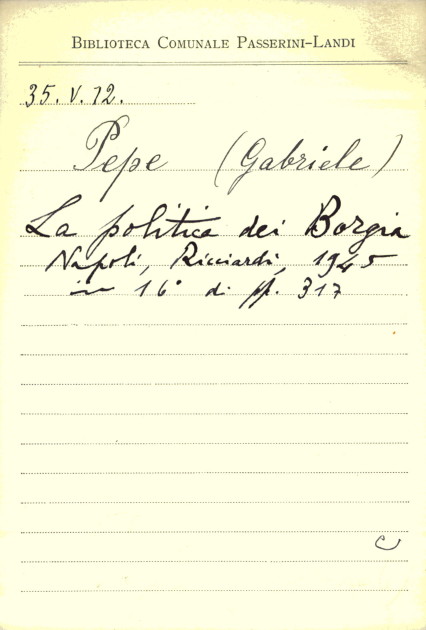 BIBLIOTECA COMUNALE PASSERINI-LANDI
35. V. 12.
Pepe (Gabriele)
La politica dei Borgia
Napoli, Ricciardi, 1945
in 16° di pp. 317